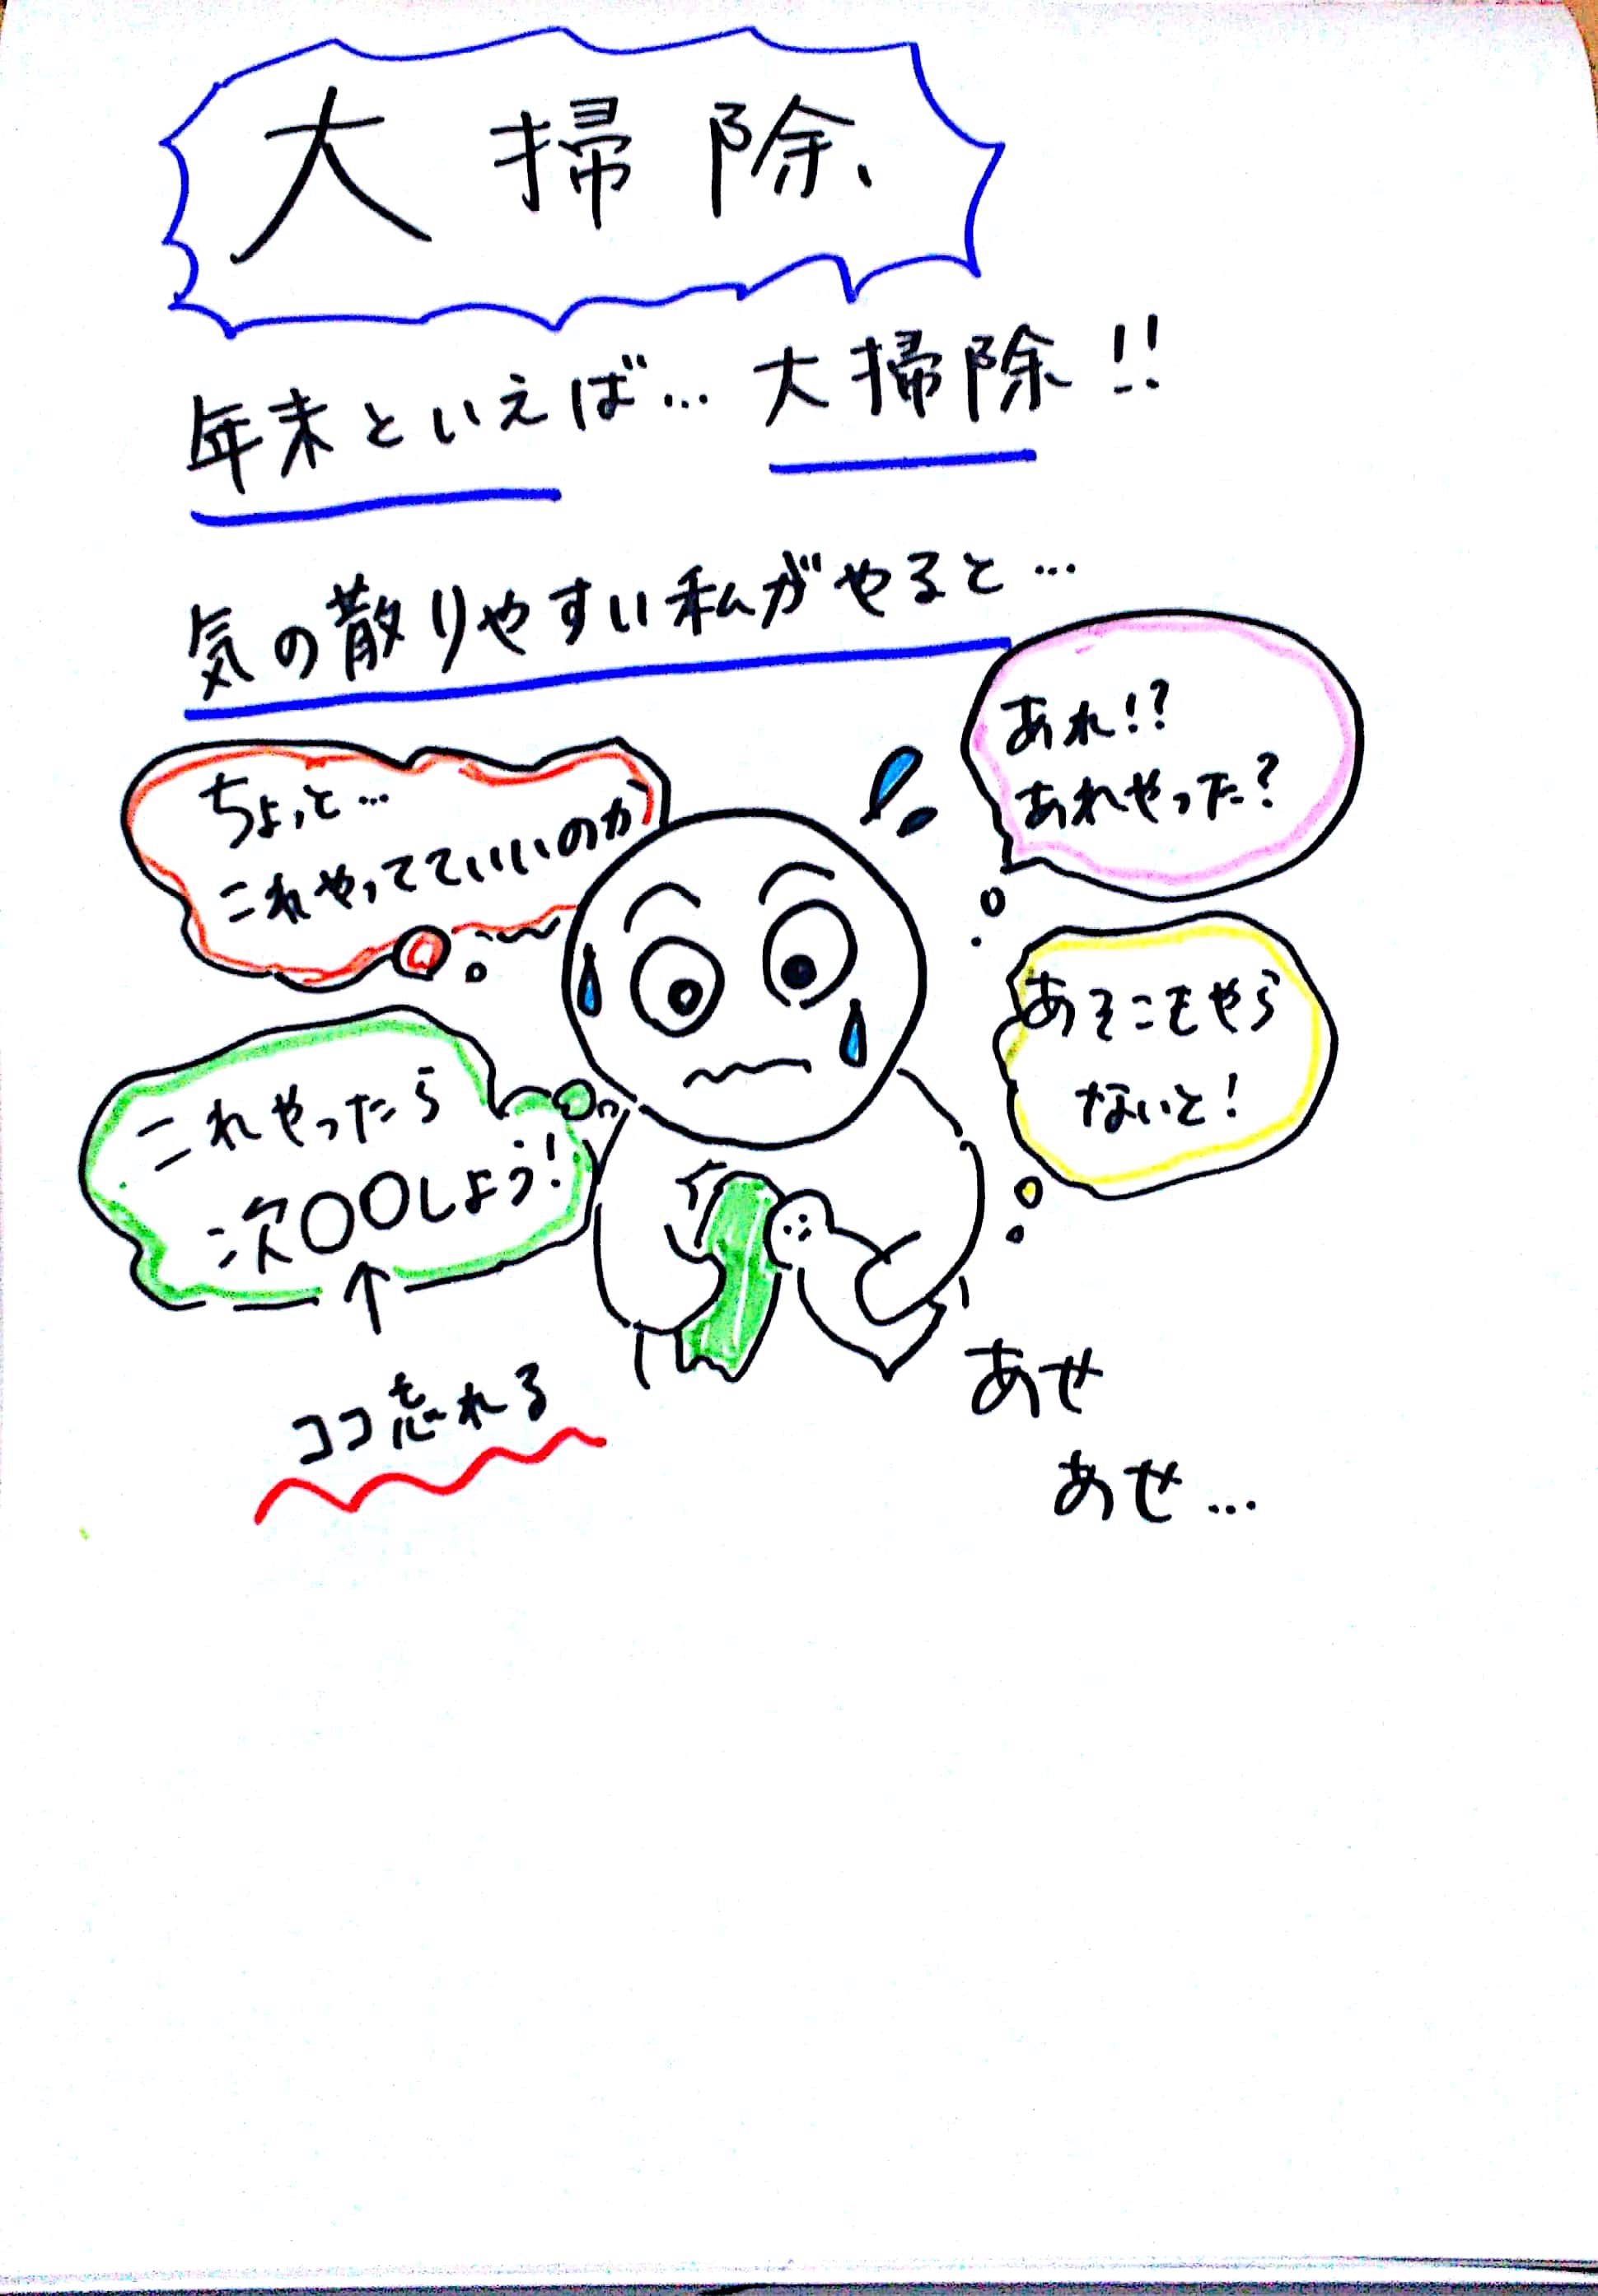 大掃除
年末といえば…大掃除!!
気の散りやすい私がやると…
ちょっと…
これやってていいのか
あれ!?
あれやった?
あそこもやら
ないと!
これやったら
次〇〇しよう!
↑
ココ忘れる
あせ
あせ…